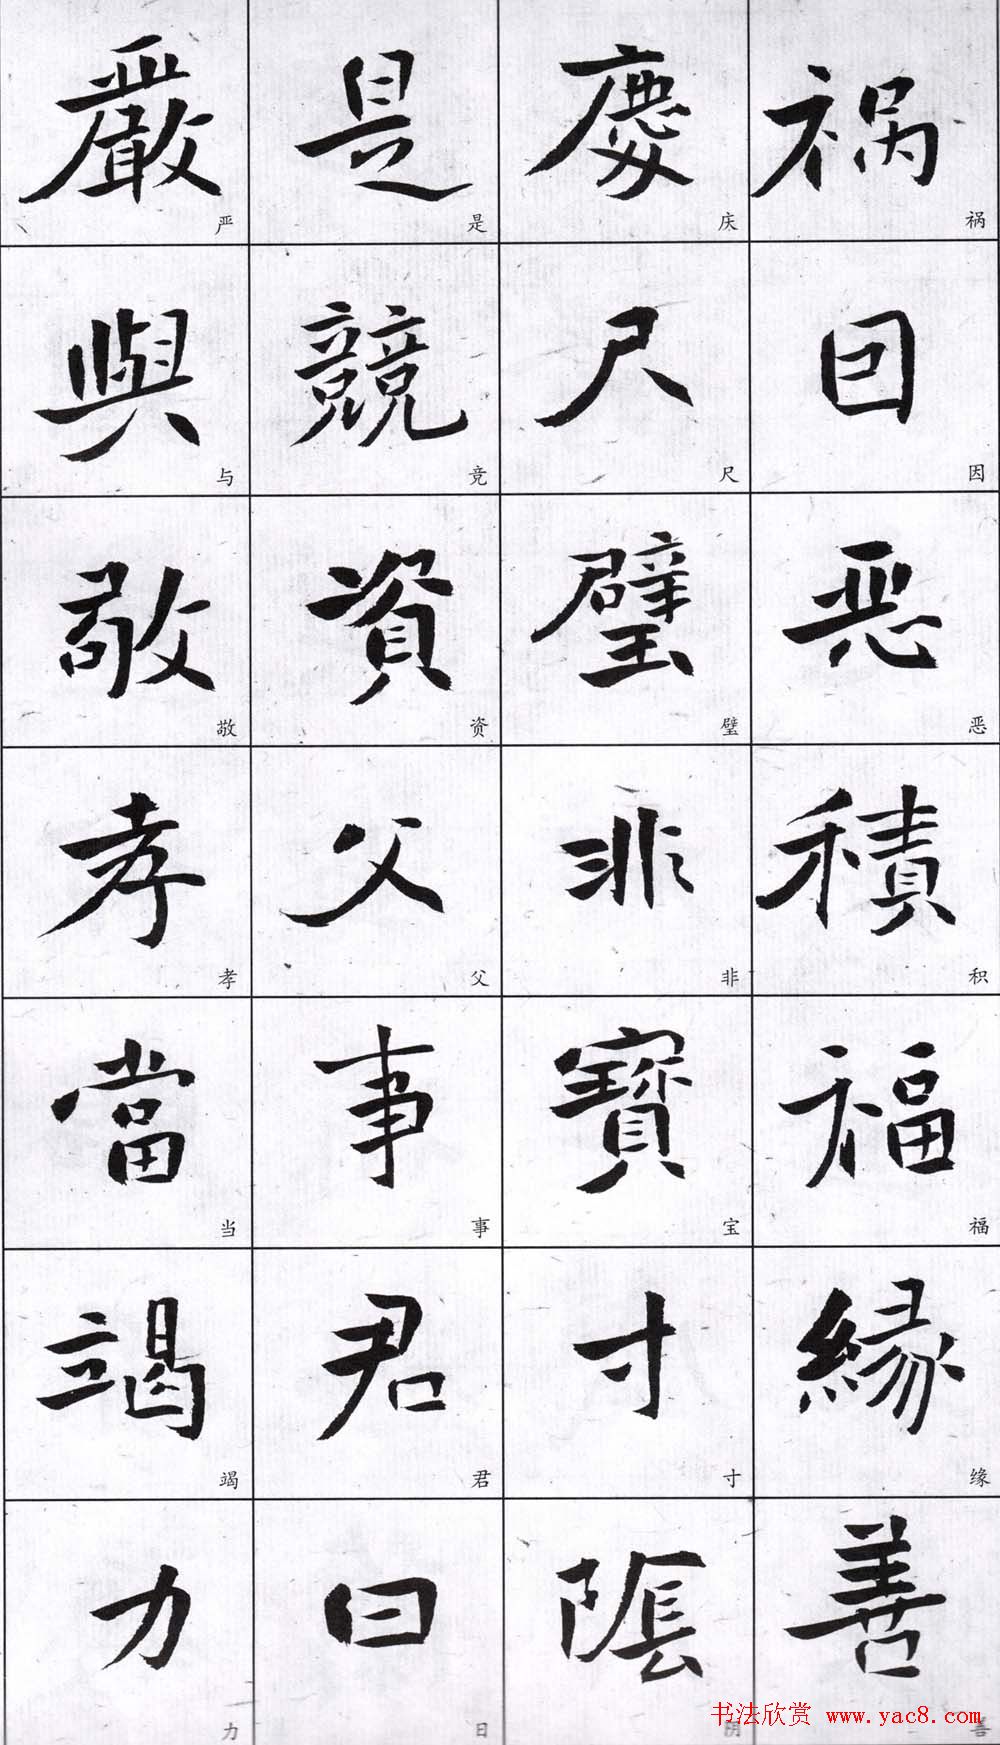 祸囙恶積福緣善
祸因恶积福缘善
慶尺璧非寶寸陰
庆尺璧非宝寸阴
是競資父事君曰
是竞资父事君日
嚴與敬孝當竭力
严与敬孝当竭力
书法欣赏 www.yac8.com